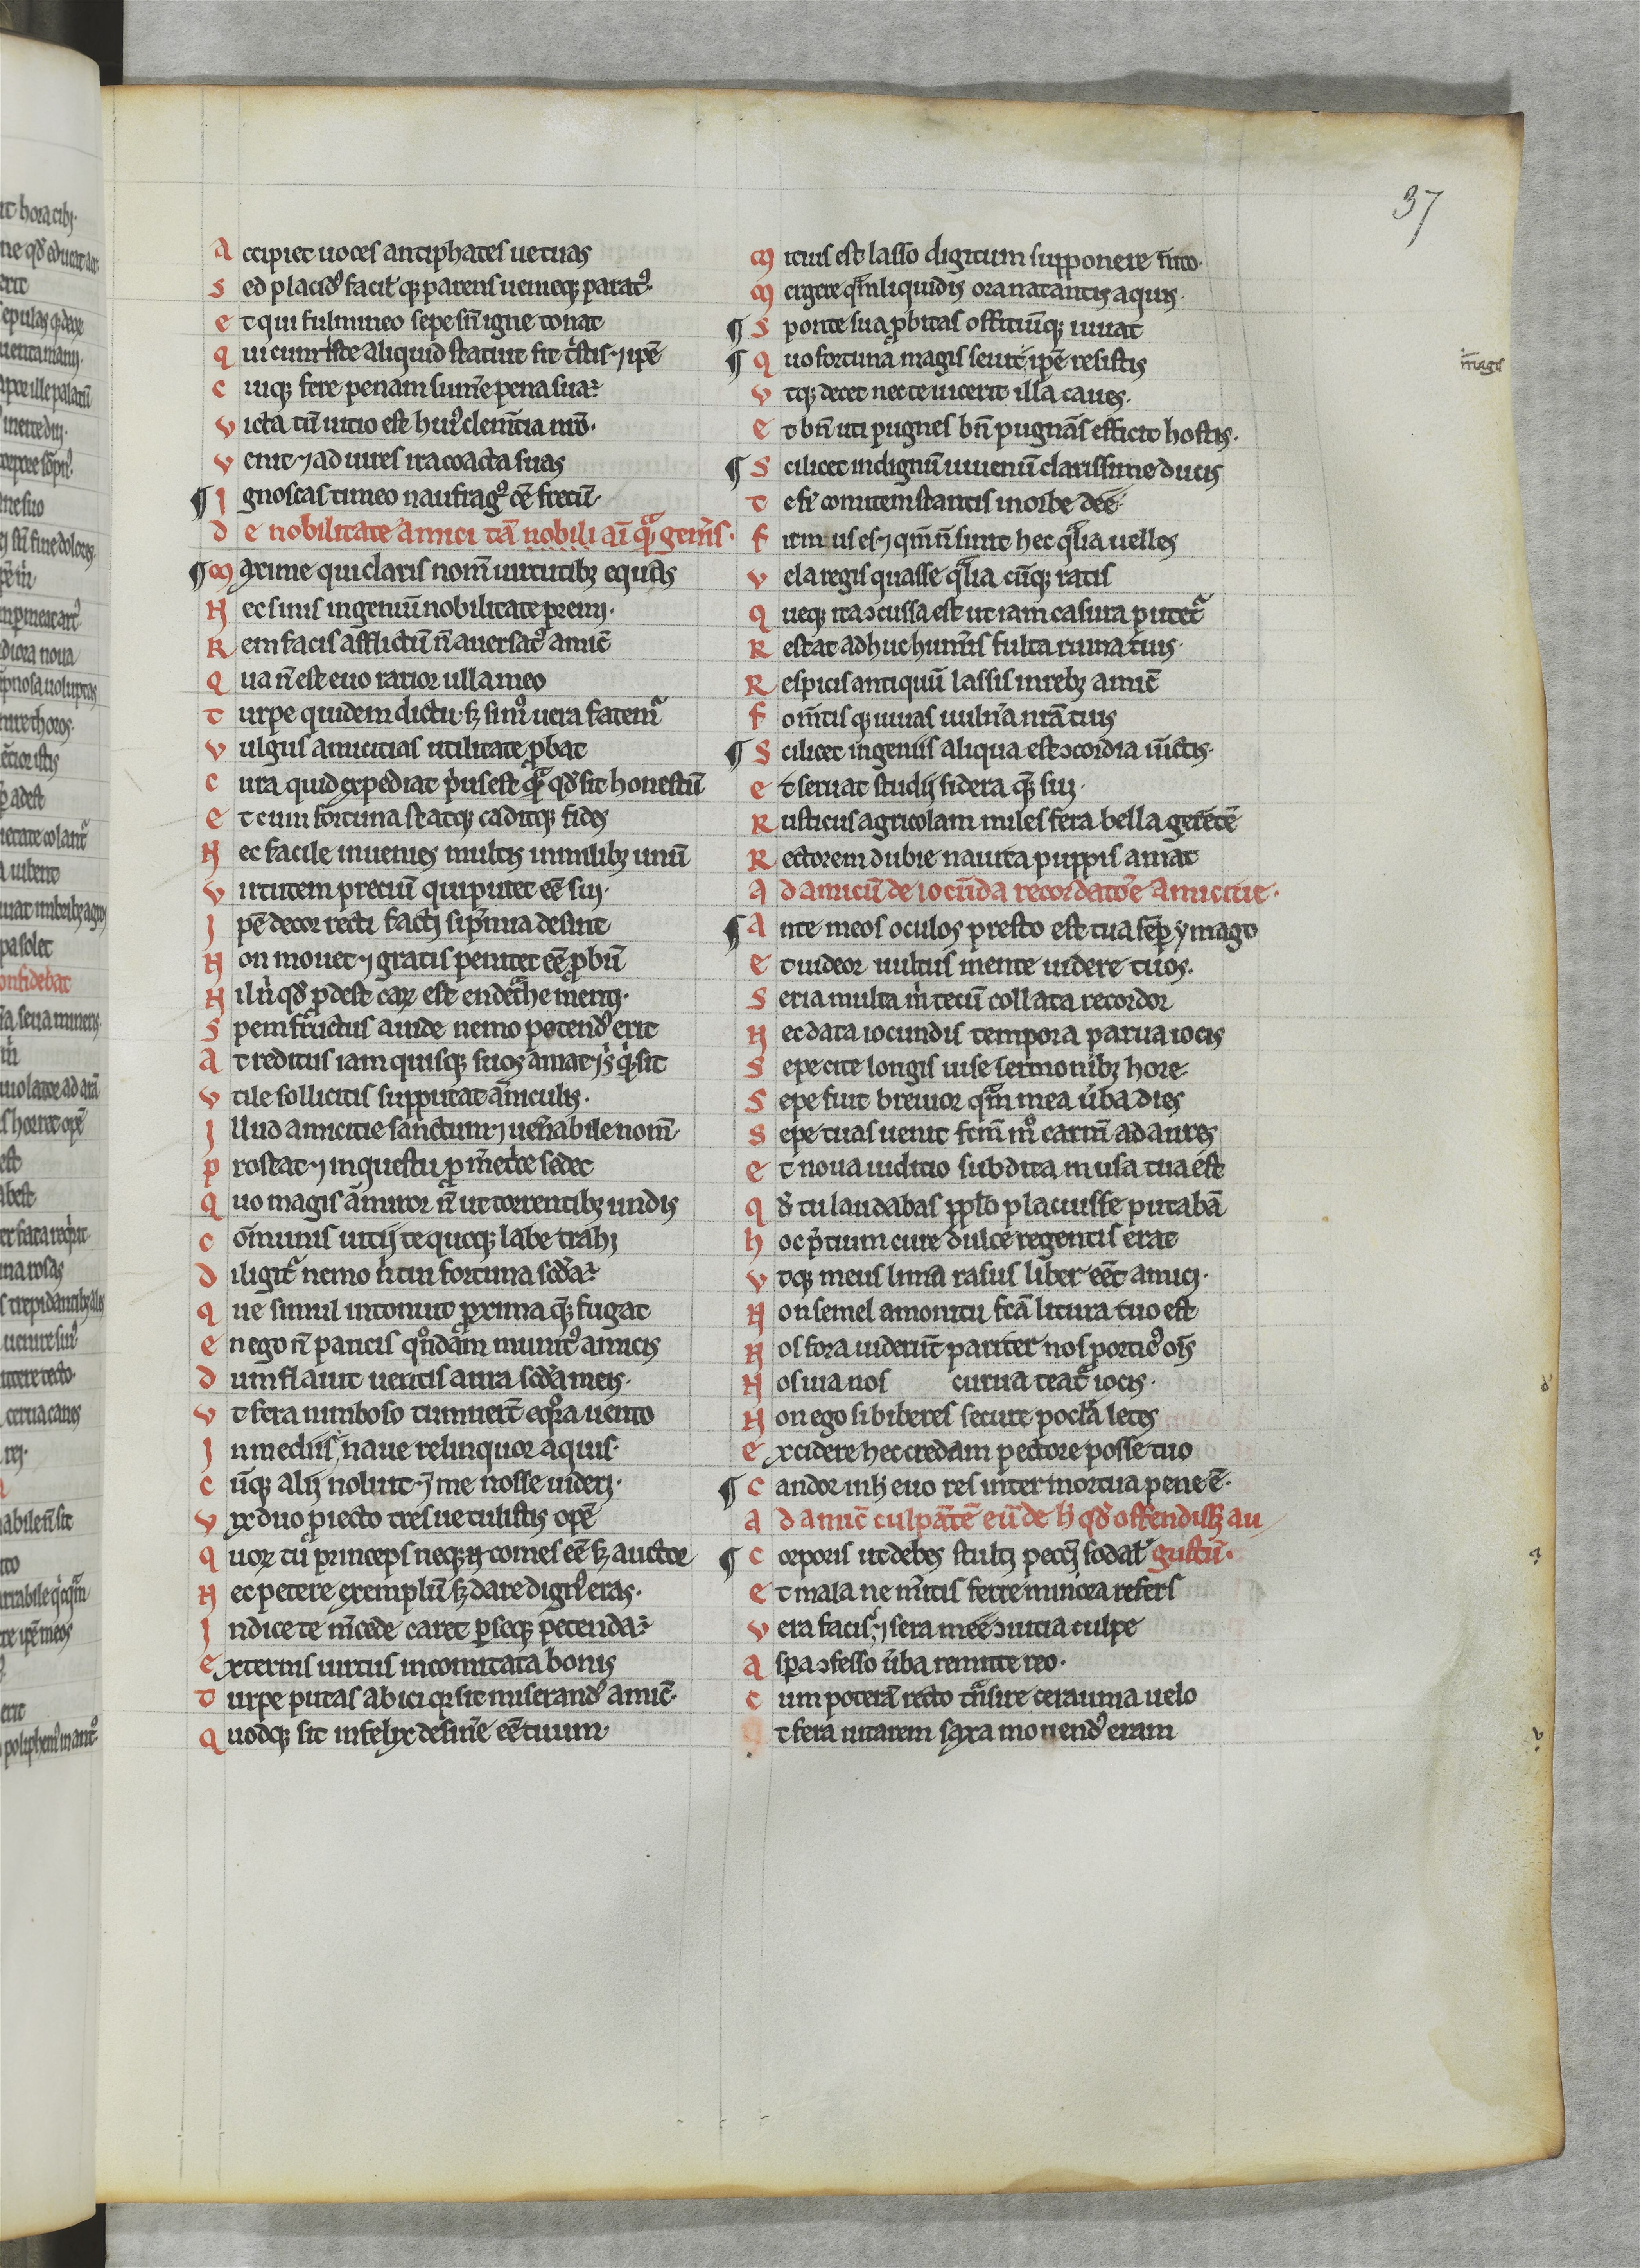 37
Accipiet uoces antiphates ue tuas
Sed placid᷒ facil' q; parens uenieq; parat᷒.
et qui fulmineo sepe sn̄ igne tonat
qui cum tͥste aliquid statuit fit tͥstis ⁊ ip̄e
Cuiq; fere penam sum̄e pena sua ÷
victa tn̄ uitio est hui᷒ clem̄tia nr̄o.
venit ⁊ ad uires ira coacta suas
¶ Ignoscas timeo naufrag᷒ om̄e fretū.
de nobilitate amici tā nobili aī qᷓ gen̄is.
¶ Maxime qui claris nom̄ uirtutibꝫ equas
Nec sinis ingeniū nobilitate premi.
Rem facis afflictū n̄ auersat᷒ amic̄
Qua n̄ est euo rarior ulla meo
Turpe quidem dictu. sꝫ sim᷒ uera fatemᷓ
vulgus amicitias utilitate ꝓbat
Cura quid expediat pͥus est qᷓ qd̄ sit honestū
et cum fortuna statq; caditq; fides
Nec facile inuenies multis in milibꝫ unū
virtutem preciū qui putet ee̅ sui.
Ip̄e decor recti facti si p̄mia desint
Non mouet ⁊ gratis penitet ee̅ ꝓbū
Nil nͥ qd̄ ꝓdest carꝫ est en detͣhe menti.
Spem fructus auide nemo petend᷒ erit
At reditus iam quisq; suos amat
vtile sollicitis supputat articulis.
Illud amicitie sanctum ⁊ uen̄abile nom̄
prostat ⁊ in questu ꝓ mͤetce sedet
Quo magis āmiror n̄ ut torrentibꝫ undis
com̄unis uitij te quoq; labe trahi
diligitᷓ nemo nͥ cui fortuna scd̄a ÷
que simul intonuit ꝓxima qꝫ fugat
en ego n̄ paucis qͦndam munit᷒ amicis
dum flauit uentis aura scd̄a meis.
vt fera nimboso tumuerͭ eqͦra uento
In mediis naue relinquor aquis.
Cūq; alij nolūt ⁊ me nosse uideri.
vix duo ꝓiecto tres ue tulistis opē
quorꝫ tu princeps neq; n̄ comes ee̅ sꝫ auctor
Nec petere exemplū sꝫ dare dign᷒ eras.
Indice te m̄cede caret ꝑ seq; petenda ÷
externis uirtus incomitata bonis
turpe putas abici qꝫ sit miserand᷒ amic᷒
Quodq; sit infelix desin̄e ee̅ tuum.
Mitius est lasso digitum supponere m̄to.
Mergere qᷓ in liquidis ora natantis aquis.
¶ Sponte sua ꝓbitas officiūq; iuuat
¶ Quo fortuna magis seuit ip̄e resistis
m̄ magis
vtq; decet nec te uicerit illa caues.
et bn̄ uti pugnes bn̄ pugnās efficit hostis.
¶ Scilicet indignū iuuenū clarissime ducis
te fiͤ comitem stantis in orbe dee.
firmus es ⁊ qm̄ n̄ sunt hec qͣlia uelles
vela regis quasse qͣlia cūq; ratis
queq; ita ɔcussa est ut iam casura putetᷓ
Restat adhuc hum̄is fulta ruina tuis.
Respicis antiquū lassis in rebꝫ amic̄
fom̄tis q; iuuas uuln̄a nr̄a tuis
¶ Scilicet ingeniis aliqua est ɔcordia iūctis.
et seruat studij federa qꝫ sui.
Rusticus agricolam miles fera bella gerētē
Rectorem dubie nauita puppis amat
ad amicū de iocūda recordatōe amicicie.
¶ Ante meos oculos presto est tua semꝑ ymago
et uideor uultus mente uidere tuos.
Seria multa mͥ tecū collata recordor
Nec data iocundis tempora parua iocis
Sepe cite longis uise sermonibꝫ hore.
Sepe fuit breuior qᷓ mea úba dies
Sepe tuas uenit fcm̄ mͦ carm̄ ad aures
et noua iuditio subdita musa tua est
qd̄ tu laudabas pplō placuisse putabā
hoc p̄tium cure dulce regentis erat
vtq; meus lima rasus liber ee̅t amici.
Non semel amonitu fcā litura tuo est
Nos fora uiderūt pariter nos portic᷒ oīs
Nos uia nos curua teatͣ iocis.
Non ego si biberes secure pocla letes
excidere hec credam pectore posse tuo
¶ Candor in h̵ euo res intermortua pene ē.
ad amic̄ culpātē eū de h̵ qd̄ offendissꝫ au
¶ Corporis ut debes stulti peccͣ sodal' gustū.
et mala ne m̄itis ferre minora refers
vera facis, ⁊ sera mee ɔuitia culpe
aspa ɔfesso úba remitte reo.
cum poterā recto tͣnsire ceraunia uelo
t fera uitarem saxa monend᷒ eram